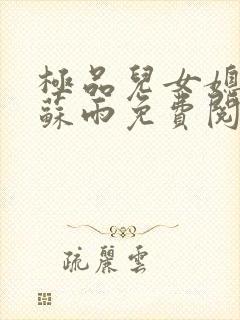 極品兒女媳
蘇雨免費閱
疏麗雲